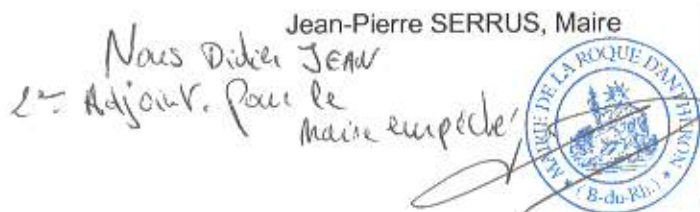 Jean-Pierre SERRUS, Maire
Nous Didier JEAN
2ème Adjoint. Pour le
Maire empêché
MAIRIE DE LA ROQUE D'ANTHERON
* (B-du-Rh.) *